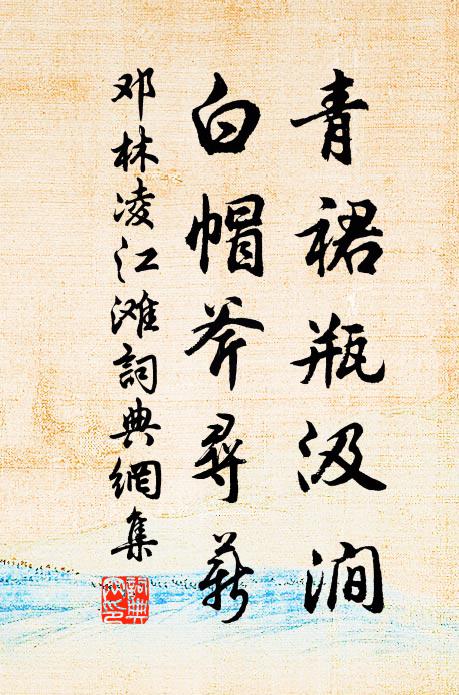 青裙瓶汲澗
白帽斧尋薪
邓林凌江滩詞典網集
詞典